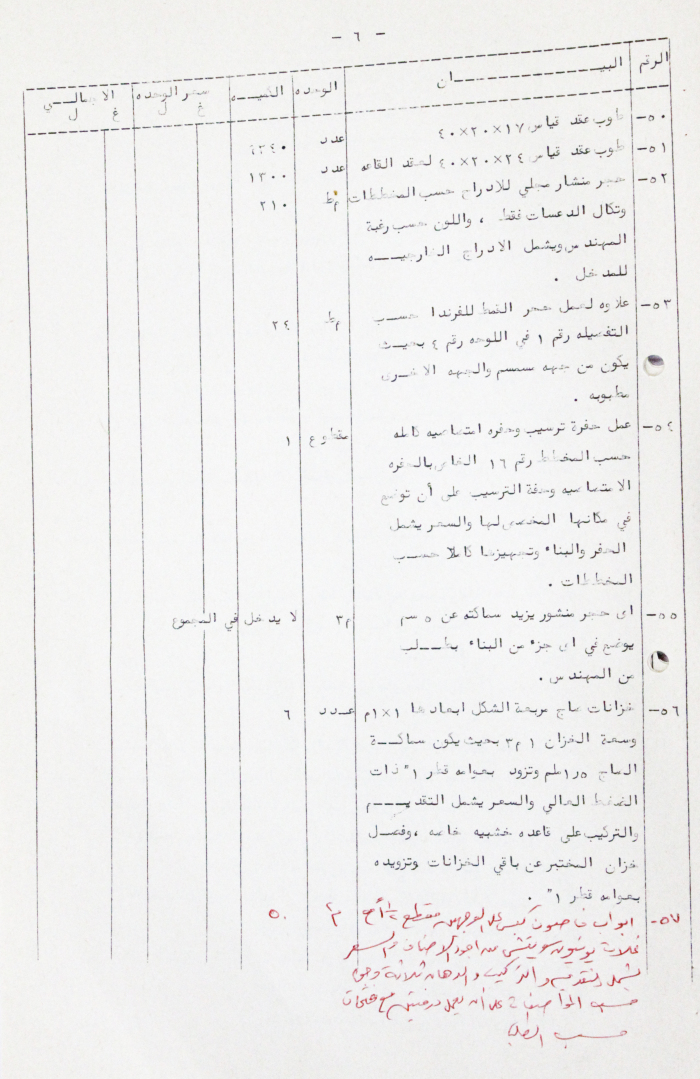 - ٦ -
الرقم البيـــــــــــان الوحده الكميـــه سعر الوحده الاجمالــــي
غ ل غ ل
٥٠- طوب عقد قياس ١٧×٢٠×٤٠ عدد
٥١- طوب عقد قياس ٢٤×٢٠×٤٠ لعقد القاعه عدد ١٣٠٠
٥٢- حجر منشار مجلي للادراج حسب المخططات م٠ط ٢١٠
وتكال الدعسات فقط ، واللون حسب رغبة
المهندس ويشمل الادراج الخارجيـــــه
للمدخل .
٥٣- علاوه لعمل حجر القمط للفرندا حســـب م٠ط ٢٤
التفصيله رقم ١ في اللوحه رقم ٤ بحيــث
يكون من جهه سمسم والجهه الاخــرى
مطبوبه .
٥٤- عمل حفرة ترسيب وحفره امتصاصيه كامله مقطوع ١
حسب المخطط رقم ١٦ الخاص بالحفره
الامتصاصيه وحفة الترسيب على أن توضع
في مكانها المخصص لها والسعر يشمل
الحفر والبناء وتجهيزها كاملا حســب
المخططات .
٥٥- اى حجر منشور يزيد سماكته عن ٥ سم م٣ لا يدخل في المجموع
يوضع في اى جزء من البناء بطـــلب
من المهندس .
٥٦- خزانات صاج مربعة الشكل ابعادها ١×١م عــدد ٦
وسعة الخزان ١ م٣ بحيث يكون سماكـــة
الصاج ١٫٥ملم وتزود بعوامه قطر ١" ذات
الضغط العالي والسعر يشمل التقديـــم
والتركيب على قاعده خشبيه خاصه ،وفصــل
خزان المختبر عن باقي الخزانات وتزويده
بعوامه قطر ١" .
٥٧- ابواب كبس على الوجهين مقطع م٢ ٥٠
من اجود الاصناف والسعر
يشمل التقديم والتركيب والدهان ثلاثة وجوه
حسب المواصفات على أن يعمل درفتين مع فتحات
حسب الطلب